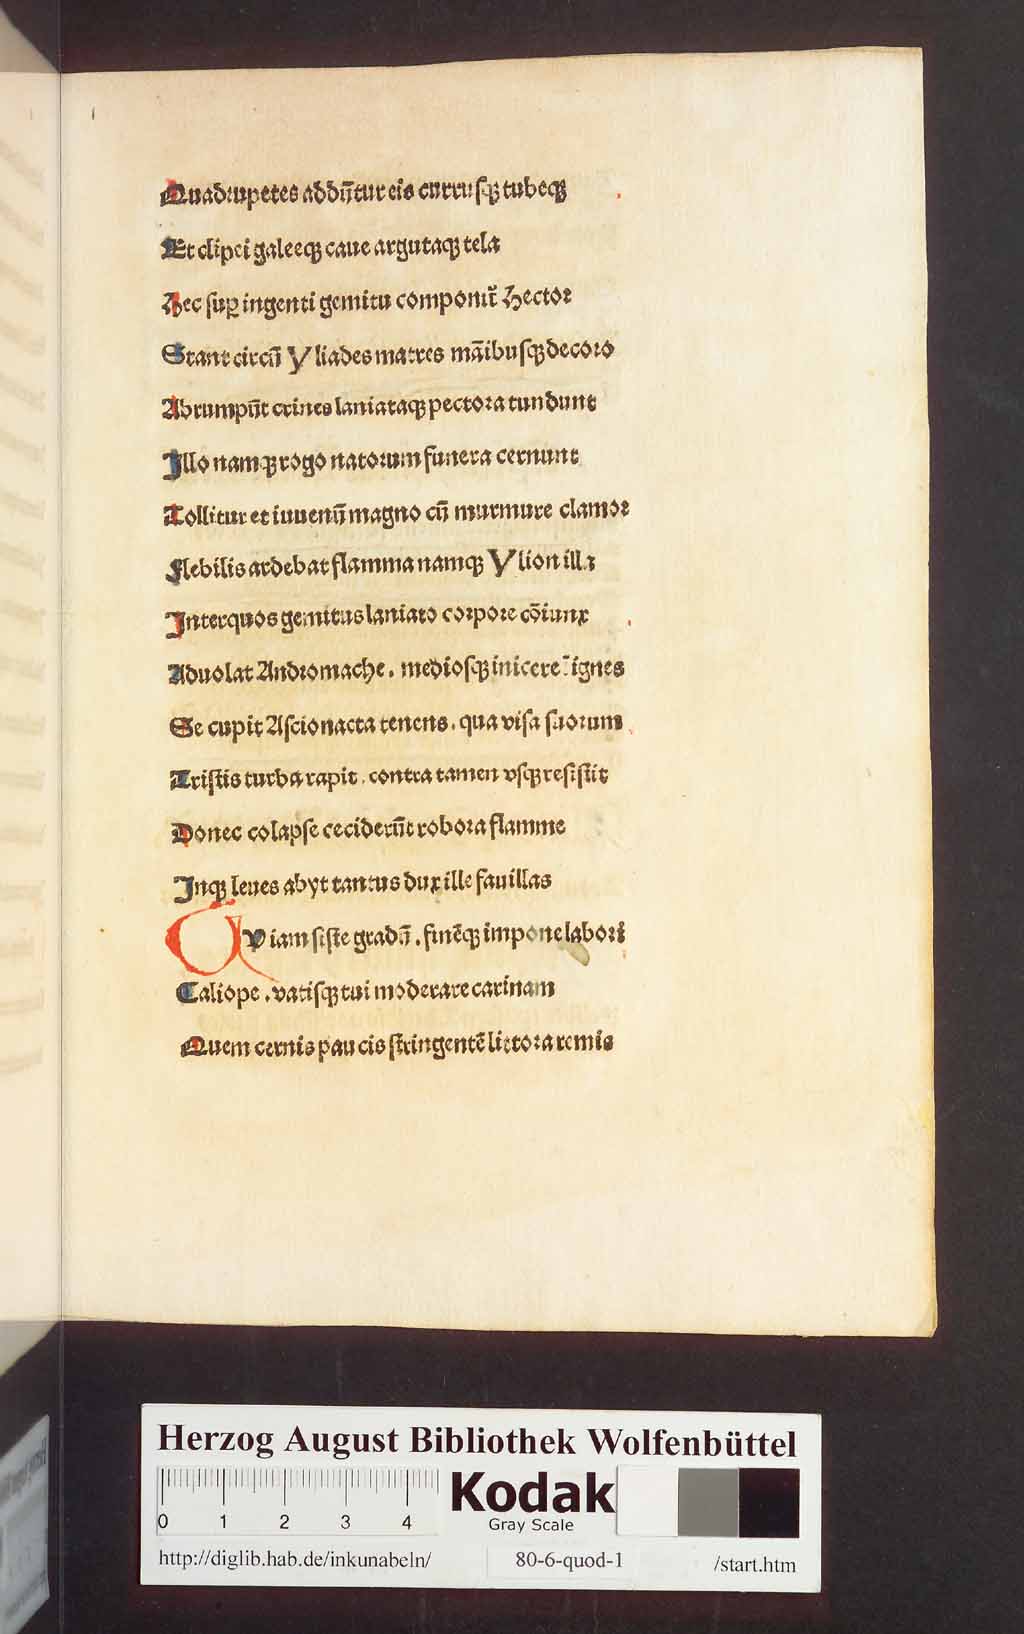 Quadrupetes addūtur eis currusqꝫ tubeqꝫ
Et clipei galeeqꝫ caue argutaqꝫ tela
Hec suꝑ ingenti gemitu componūt Hector
Stant circū Yliades matres māibusqꝫ decoro
Abrumpūt crines laniataqꝫ pectora tundunt
Illo namqꝫ rogo natorum funera cernunt
Tollitur et iuuenū magno cū murmure clamor
Flebilis ardebat flamma namqꝫ Ylion illa
Interquos gemitus laniato corpore cōiunx
Aduolat Andromache . mediosqꝫ inicere ignes
Se cupit Ascionacta tenens . qua visa suorum
Tristis turba rapit . contra tamen vsqꝫ resistit
Donec colapse ceciderūt robora flamme
Inqꝫ leues abyt tantus dux ille fauillas
Qviam siste gradū . finēqꝫ impone labori
Caliope . vatisqꝫ tui moderare carinam
Quem cernis paucis stringentē littora remis
Herzog August Bibliothek Wolfenbüttel
0 1 2 3 4
Kodak
Gray Scale
http://diglib.hab.de/inkunabeln/ 80-6-quod-1 /start.htm